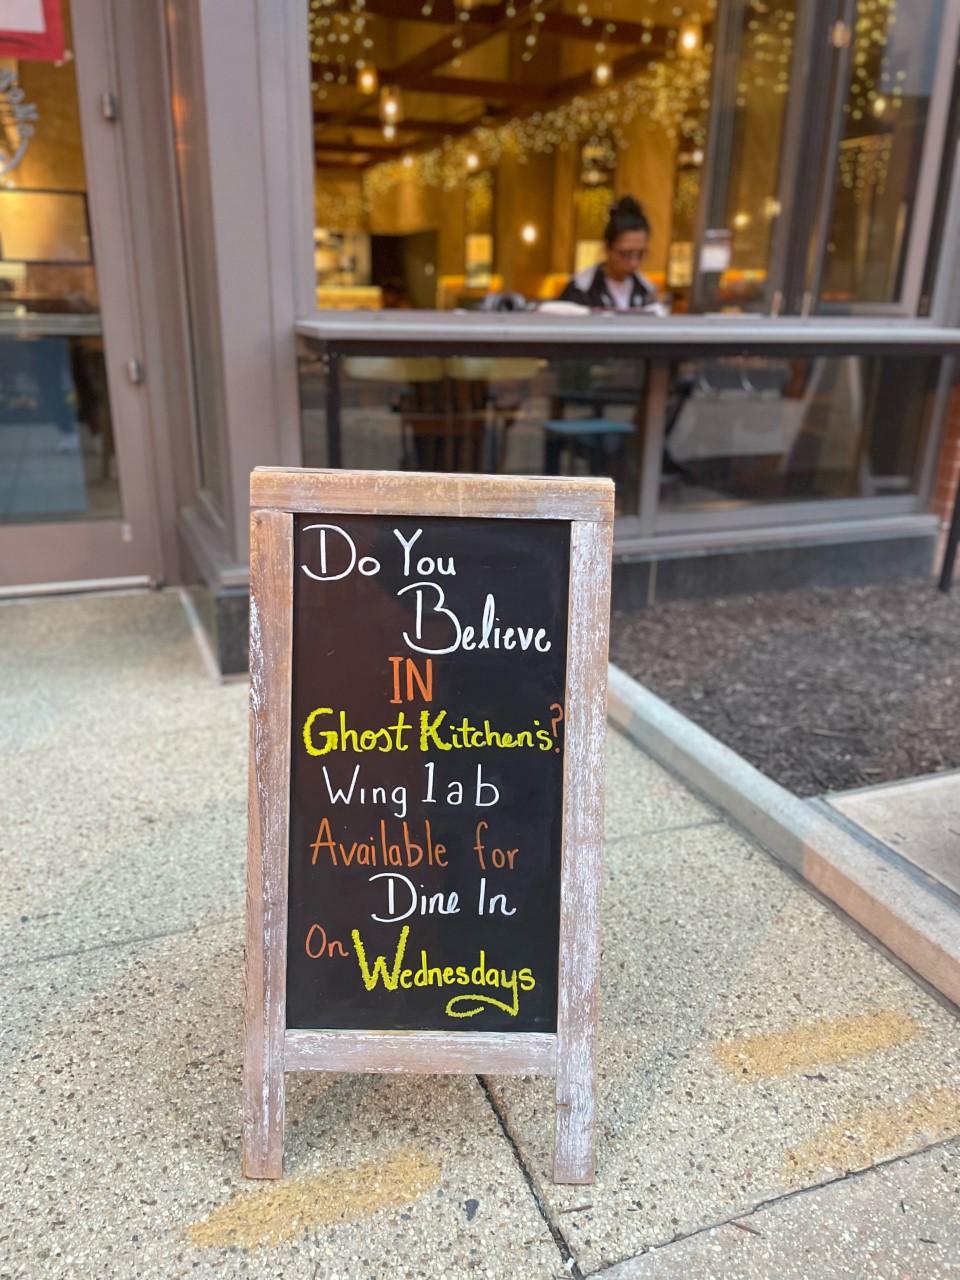 Do You
Believe
IN
Ghost Kitchen's?
Wing lab
Available for
Dine In
On Wednesdays